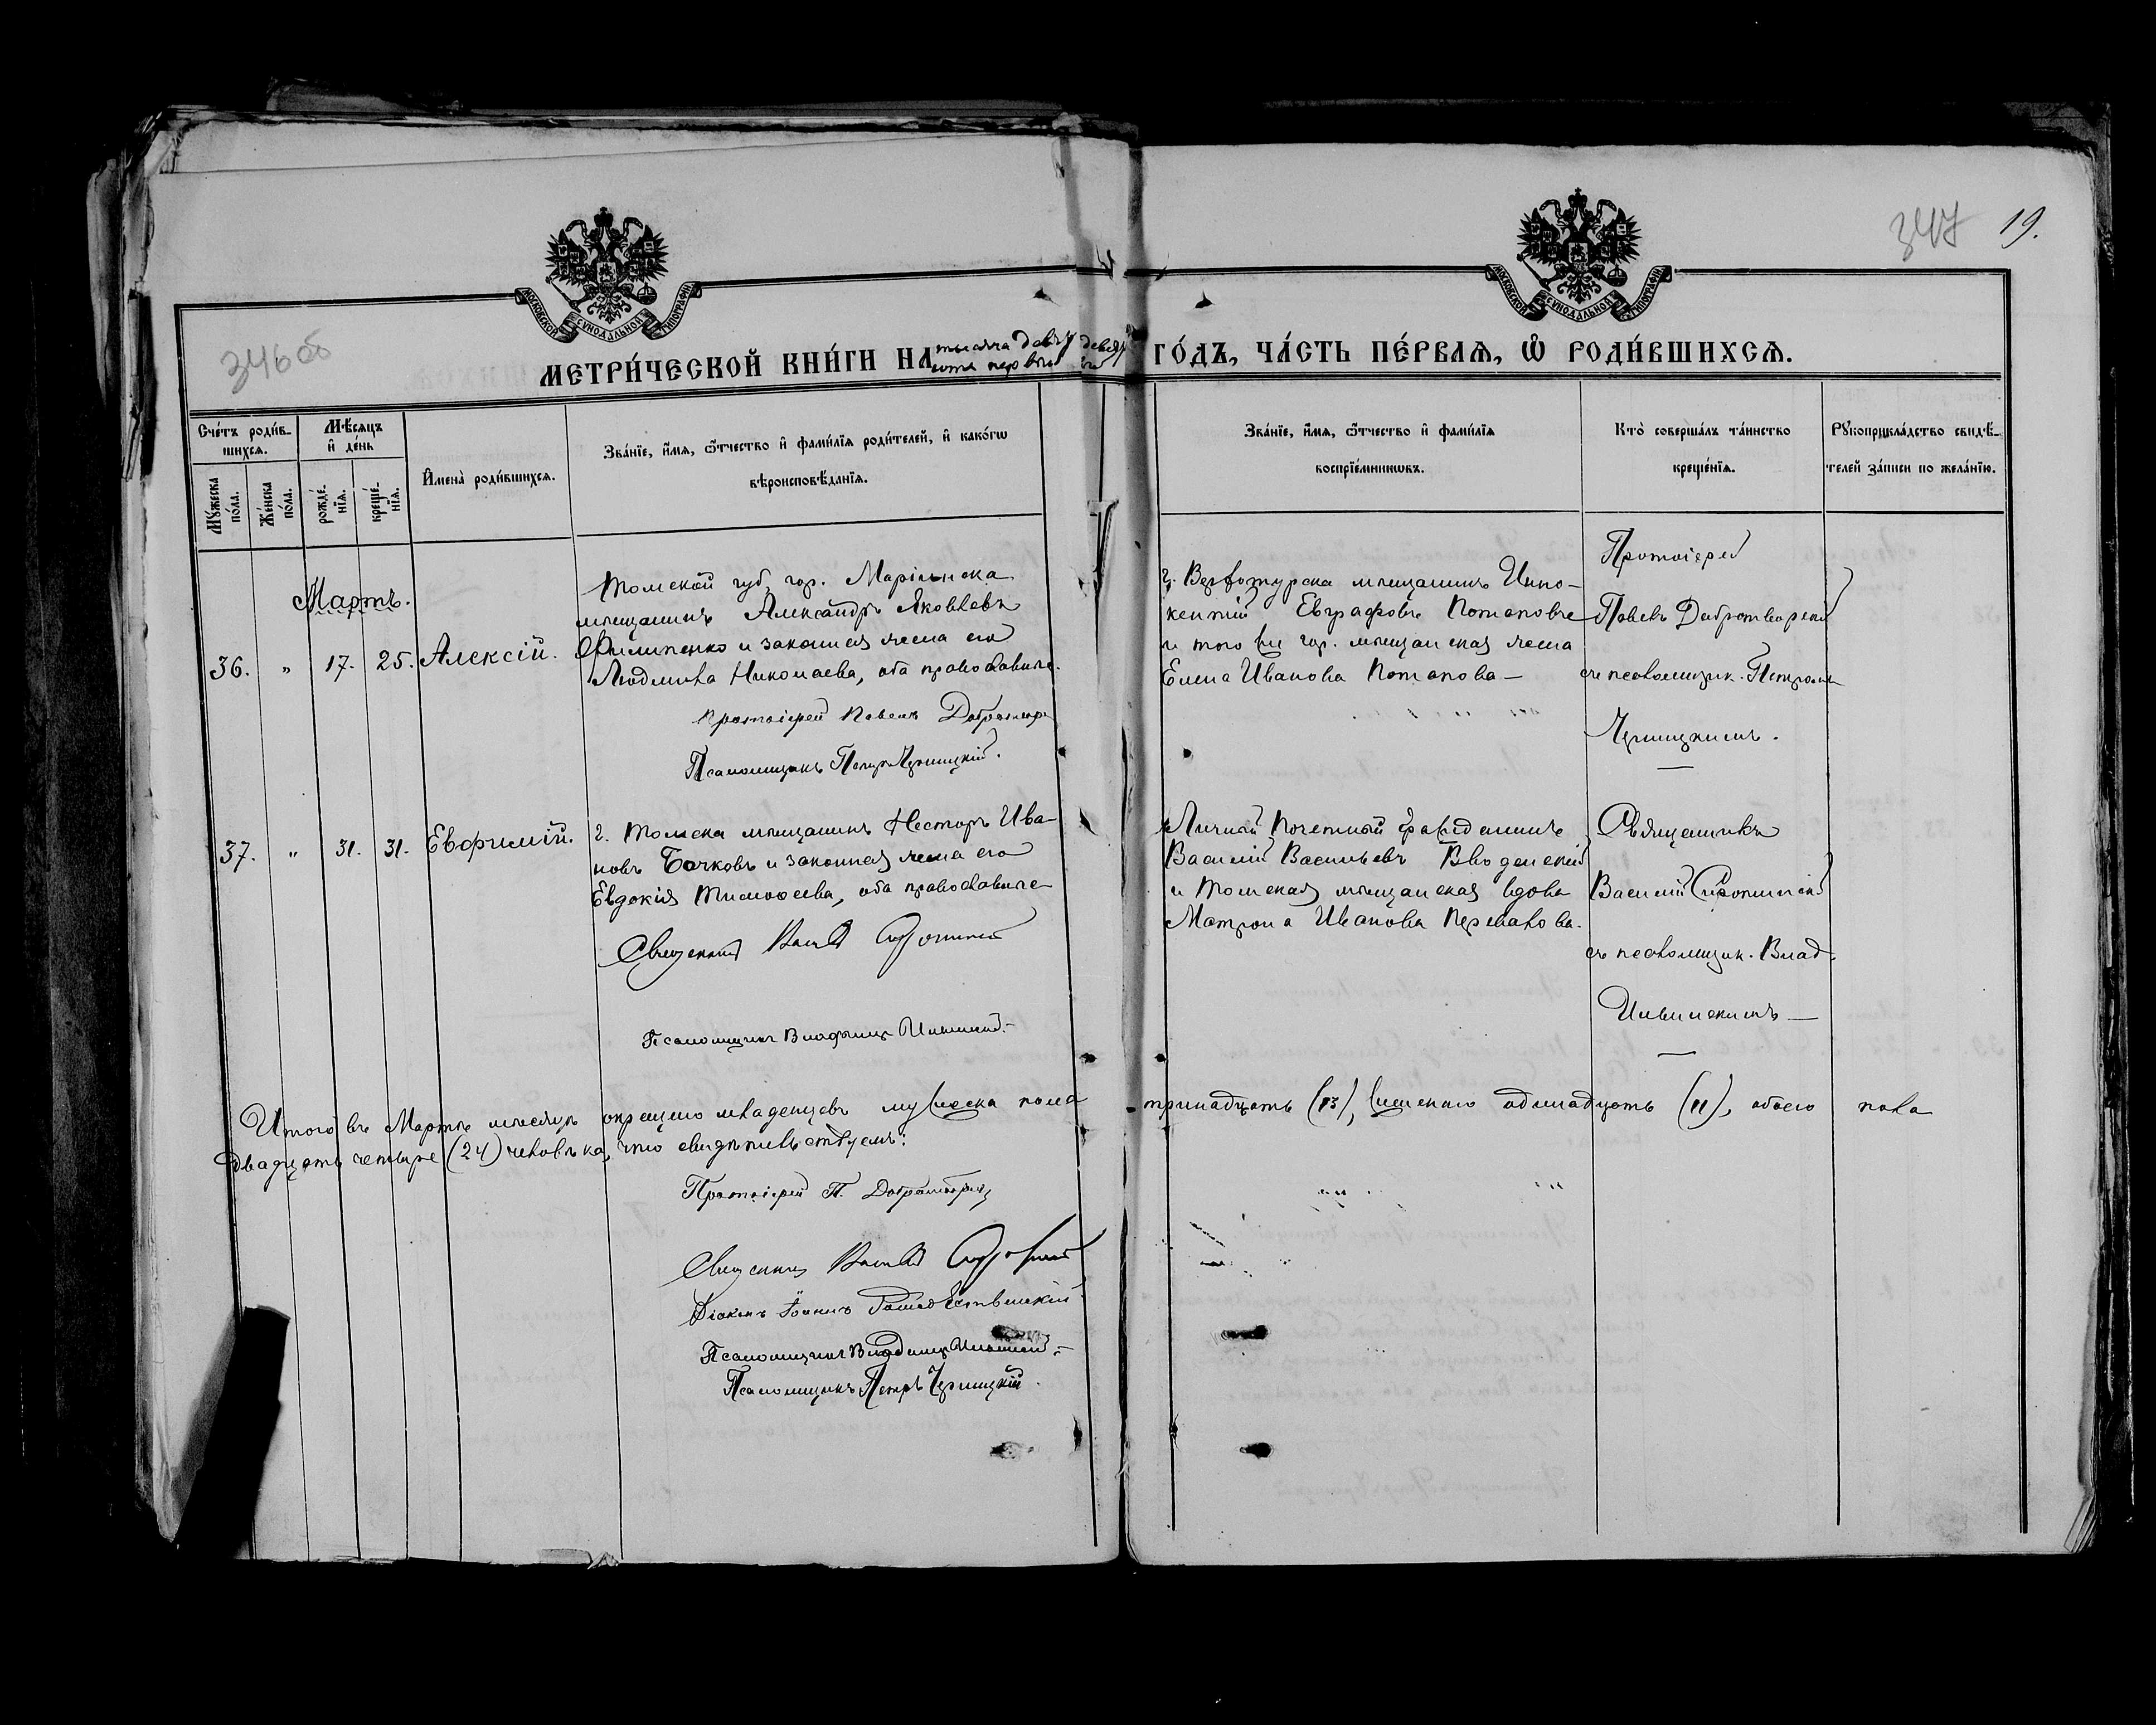 347 19.
346 об
МОСКОВСКОЙ СѴНОДАЛЬНОЙ ТИПОГРАФІИ
МОСКОВСКОЙ СѴНОДАЛЬНОЙ ТИПОГРАФІИ
МЕТРИ́ЧЕСКОЙ КНИ́ГИ НА тысяча девять
сотъ первый ГО́ДЪ, ЧА́СТЬ ПЕ́РВАѦ, Ѽ РОДИ́ВШИХСѦ.
Сче́тъ роди́в-
шихсѧ.
Мѣ́сѧцъ
и҆ де́нь
Мꙋ́жеска по́ла.
Же́нска по́ла.
рожде́-нїѧ.
креще́-нїѧ.
И҆мена̀ роди́вшихсѧ.
Зва́нїе, и҆́мѧ, ѻ҆́тчество и҆ фами́лїѧ роди́телей, и҆ како́гѡ
вѣроисповѣ́данїѧ.
Зва́нїе, и҆́мѧ, ѻ҆́тчество и҆ фами́лїѧ
воспрїе́мникѡвъ.
Кто̀ соверша́лъ та́инство
креще́нїѧ.
Рꙋкоприкла́дство свидѣ́-
телей за́писи по жела́нїю.
Мартъ.
36. " 17. 25. Алексій.
Томской губ, гор. Маріинска
мѣщанинъ Александръ Яковлевъ
Филипенко и законная жена его
Людмила Николаева, оба православные
Протоіерей Павелъ Добротвор
Псаломщикъ Петръ Черницкій.
г. Верхотурска мѣщанинъ Инно-
кентій Евграфовъ Потаповъ
и того же гор. мѣщанская жена
Елена Иванова Потапова —
Протоіерей
Павелъ Добротворскій
съ псаломщик. Петромъ
Черницкимъ.
37. " 31. 31. Евфимій.
г. Томска мѣщанинъ Несторъ Ива-
новъ Бочковъ и законная жена его
Евдокія Тимофеева, оба православные
Священник Василій
Псаломщикъ Владиміръ
Личный Почетный Гражданинъ
Василій Васильевъ Введенскій
и Томская мѣщанская вдова
Матрона Иванова
Священникъ
Василій
съ псаломщик. Влад.
Итого въ Мартѣ мѣсяцѣ крещено младенцевъ мужеска пола тринадцать (13), женскаго одинадцать (11), обоего пола
двадцать четыре (24) человѣка, что свидѣтельствуемъ:
Протоіерей П. Добротворск
Священникъ Василій
Діаконъ Іоаннъ Рождественскій
Псаломщикъ Владиміръ
Псаломщикъ Петръ Черницкій.